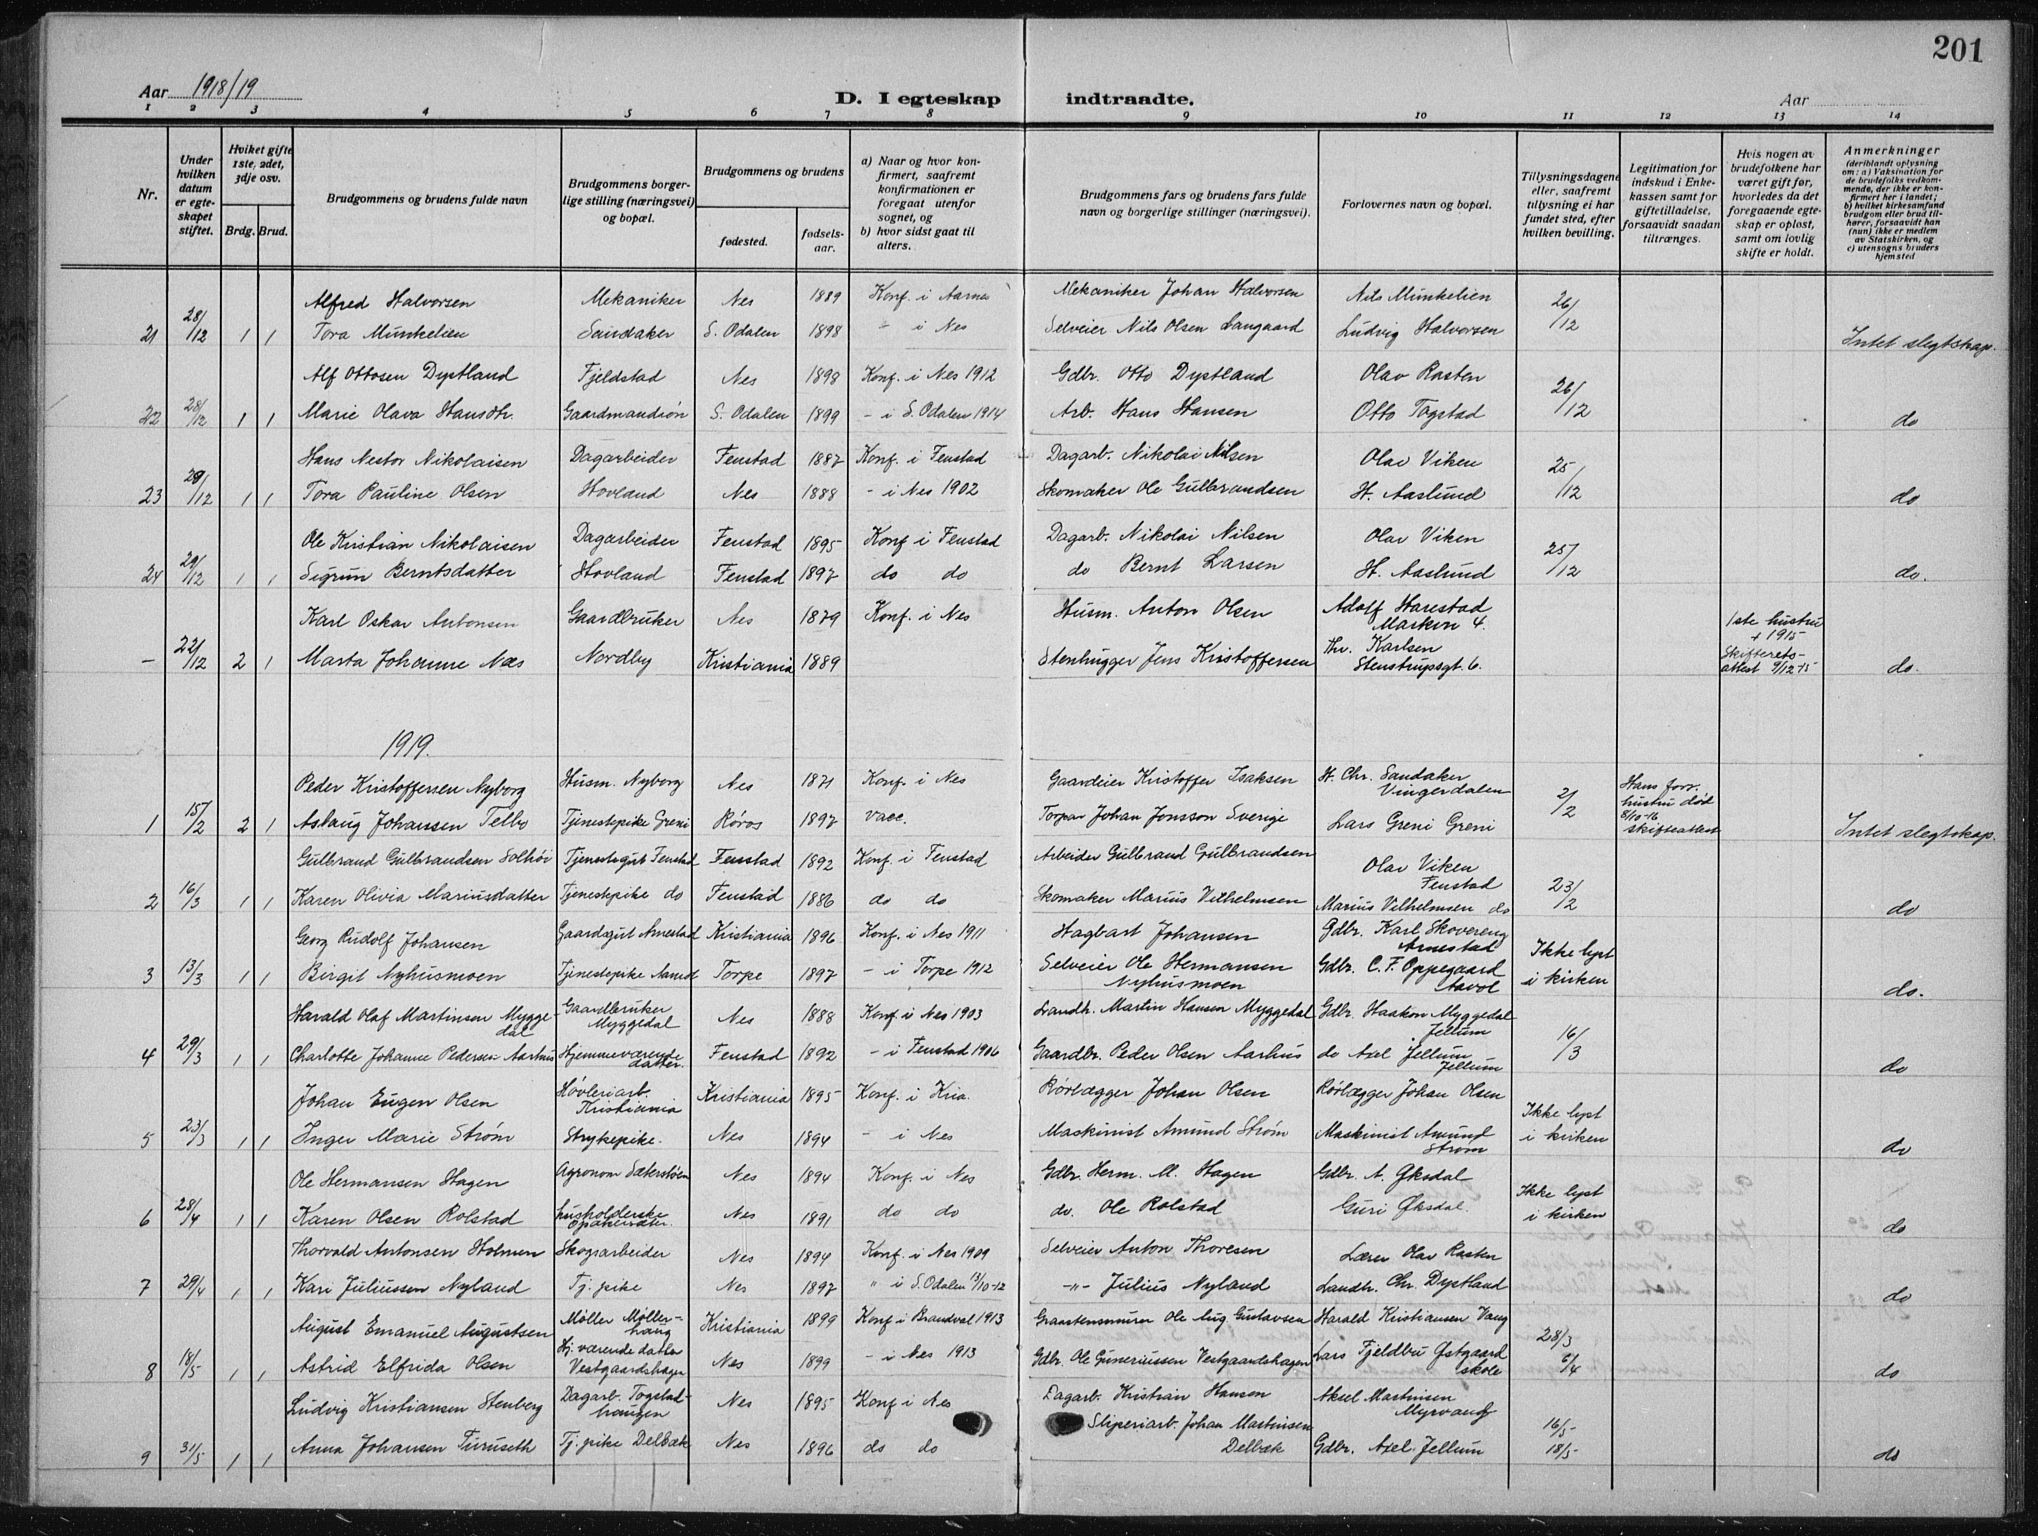 201
Aar 1918/19
D. I egteskap indtraadte.
Aar
1 2 3 4 5 6 7 8 9 10 11 12 13 14
Nr.
Under hvilken datum er egteskapet stiftet.
Hviket gifte 1ste, 2det, 3dje osv.
Brdg. Brud.
Brudgommens og brudens fulde navn
Brudgommens borgerlige stilling (næringsvei) og bopæl.
Brudgommens og brudens
fødested. fødselsaar.
a) Naar og hvor konfirmert, saafremt konfirmationen er foregaat utenfor sognet, og
b) hvor sidst gaat til alters.
Brudgommens fars og brudens fars fulde navn og borgerlige stillinger (næringsvei).
Forlovernes navn og bopæl.
Tillysningsdagene eller, saafremt tillysning ei har fundet sted, efter hvilken bevilling.
Legitimation for indskud i Enkekassen samt for giftetilladelse, forsaavidt saadan tiltrænges.
Hvis nogen av brudefolkene har været gift før, hvorledes da det foregaaende egteskap er opløst, samt om lovlig skifte er holdt.
Anmerkninger (deriblandt oplysning om: a) Vaksination for de brudefolks vedkommende, der ikke er konfirmert her i landet; b) hvilket kirkesamfund brudgom eller brud tilhører, forsaavidt han (hun) ikke er medlem av Statskirken, og c) utensogns bruders hjemsted
Alfred Halvorsen Mekaniker Nes 1889 Konf. i Aarnes Mekaniker Johan Halvorsen Nils Munkelien 26/12
21 28/12 1 1 Tora Munkelien Sandaker S. Odalen 1898 " i Nes Selveier Nils Olsen Langaard Ludvig Halvorsen Intet slegtskap.
Alf Ottosen Dystland Fjeldstad Nes 1898 Konf. i Nes 1912 Gdbr. Otto Dystland Olav Rasten 26/12
22 28/12 1 1 Marie Olava Hansdtr. Gaardmandsøn S. Odalen 1899 - i S. Odalen 1914 Arb. Hans Hansen Otto Togstad do
Hans Nestor Nikolaisen Dagarbeider Fenstad 1887 Konf. i Fenstad Dagarb. Nikolai Nilsen Olav Viken 25/12
23 29/12 1 1 Tora Pauline Olsen Hovland Nes 1888 - i Nes 1902 Skomaker Ole Gulbrandsen H. Aaslund do
Ole Kristian Nikolaisen Dagarbeider Fenstad 1895 Konf i Fenstad Dagarb. Nikolai Nilsen Olav Viken 25/12
24 29/12 1 1 Sigrun Berntsdatter Hovland Fenstad 1897 do do do Bernt Larsen H. Aaslund do.
Karl Oskar Antonsen Gaardbruker Nes 1879 Konf. i Nes Husm. Anton Olsen Adolf Harestad Markvn 4. 1ste hustru + 1915
- 22/12 2 1 Marta Johanne Næs Nordby Kristiania 1889 Stenhugger Jens Kristoffersen Thr. Karlsen Stenstrupsgt. 6. Skifterets-attest 9/12-15 do.
1919.
Peder Kristoffersen Nyborg Husm. Nyborg Nes 1871 Konf. i Nes Gaardeier Kristoffer Isaksen H. Chr. Sandaker Vingerdalen 2/2 Hans forr. hustru død 8/10-16 skifteattest
1 15/2 2 1 Aslaug Johansen Telbo Tjenestepike Greni Røros 1897 Vacc. Torpar Johan Jonsson Sverige Lars Greni Greni Intet slegtskap.
Gulbrand Gulbrandsen Solhøi Tjenestegut Fenstad Fenstad 1892 Konf. i Fenstad Arbeider Gulbrand Gulbrandsen Olav Viken Fenstad 23/2
2 16/3 1 1 Karen Olivia Mariusdatter Tjenestepike do Fenstad 1886 do do Skomaker Marius Vilhelmsen Marius Vilhelmsen do do
Georg Rudolf Johansen Gaardsgut Arnestad Kristiania 1896 Konf. i Nes 1911 Hagbart Johansen Gdbr. Karl Skovereng Arnestad Ikke lyst i kirken
3 13/3 1 1 Birgit Nyhusmoen Tjenestepike Torpe 1897 - i Torpe 1912 Selveier Ole Hermansen Nyhusmoen Gdbr. C. F. Oppegaard Aavol do.
Harald Olaf Martinsen Myggedal Gaardbruker Myggedal Nes 1888 Konf. i Nes 1903 Landh. Martin Hansen Myggedal Gdbr. Haakon Myggedal Jellum 16/3
4 29/3 1 1 Charlotte Johanne Pedersen Aarhus Hjemmeværende datter. Fenstad 1892 - i Fenstad 1906 Gaardbr. Peder Olsen Aarhus do Axel Jellum Jellum do
Johan Eugen Olsen Høvleriarb. Kristiania Kristiania 1895 Konf. i Kria. Rørlægger Johan Olsen Rørlægger Johan Olsen Ikke lyst i kirken
5 23/3 1 1 Inger Marie Strøm Strykepike. Nes 1894 - i Nes Maskinist Amund Strøm Maskinist Amund Strøm do
Ole Hermansen Hagen Agronom Sæterstøen Nes 1894 Konf. i Nes Gdbr. Herm. M. Hagen Gdbr. A. Øksdal Ikke lyst i kirken
6 28/4 1 1 Karen Olsen Rolstad Husholderske Nes 1891 do do do. Ole Rolstad Guri Øksdal. do
Thorvald Antonsen Holmen Skogsarbeider Nes 1894 Konf. i Nes 1909 Selveier Anton Thoresen Lærer Olav Rasten
7 29/4 1 1 Kari Juliussen Nyland Tj. pike Nes 1897 " i S. Odalen 13/10-12 -"- Julius Nyland Landh. Chr. Dystland do
August Emanuel Augustsen Møller Møllerhaug Kristiania 1899 Konf i Brandval 1913 Graastensmurer Ole Aug Gustavsen Harald Kristiansen Vang 28/3
8 18/5 1 1 Astrid Elfrida Olsen Hj. værende datter Vestgaardshagen Nes 1899 - i Nes 1913 Gdbr. Ole Guneriussen Vestgaardshagen Lars Fjeldbu Østgaard skole 6/4 do
Ludvig Kristiansen Stenberg Dagarb. Togstadhaugen Nes 1895 Konf i Nes Dagarb. Kristian Hansen Aksel Martinsen Myrvang 16/5
9 31/5 1 1 Anna Johansen Turuseth Tj. pike Delbæk Nes 1896 do do Sliperiarb. Johan Martinsen Delbæk Gdbr. Axel Jellum 18/5 do